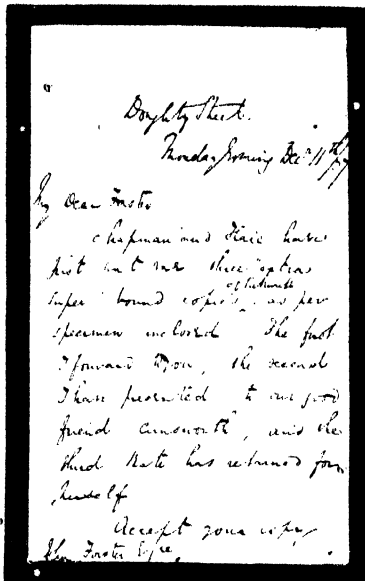 Doughty Street.
Monday Evening Decr 11th / 37
My Dear Forster
Chapman and Hall have
just sent me three "extra
super" bound copies of Pickwick, as per
specimen inclosed. The first
I forward to you, the second
I have presented to our good
friend Ainsworth, and the
third Kate has retained for
herself
Accept your copy
John Forster Esqre